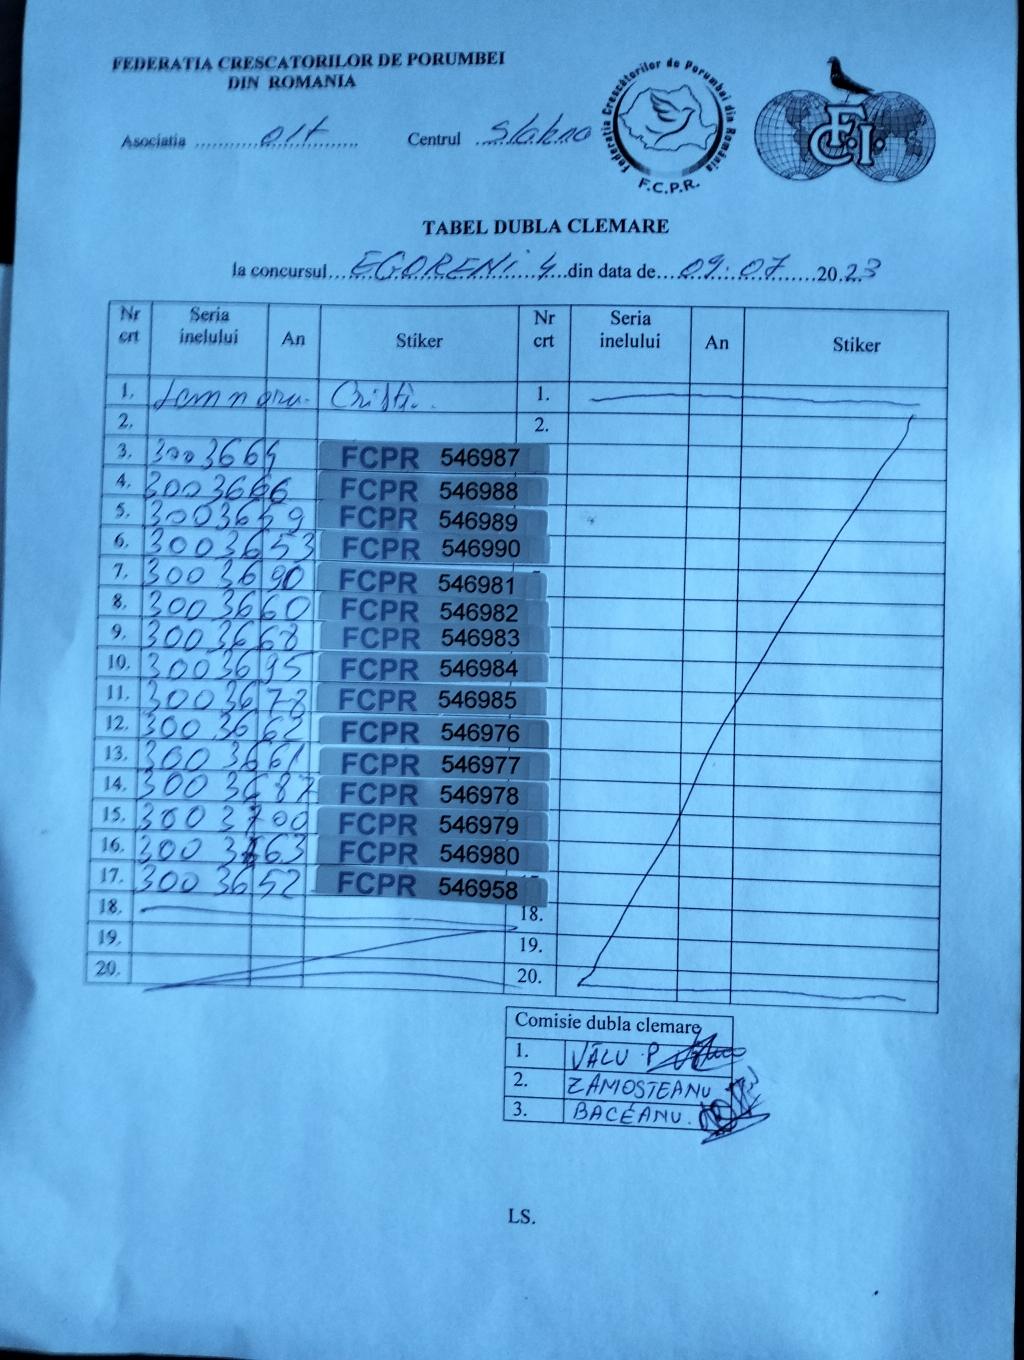 FEDERATIA CRESCATORILOR DE PORUMBEI
DIN ROMANIA
Asociatia olt Centrul Slatina
Federatia Crescătorilor de Porumbei din România
F.C.P.R.
F.C.I.
TABEL DUBLA CLEMARE
la concursul EGORENI 4 din data de 09.07 2023
Nr crt Seria inelului An Stiker Nr crt Seria inelului An Stiker
1. Cristi 1.
2. 2.
3. 3003664 FCPR 546987
4. 3003666 FCPR 546988
5. 3003659 FCPR 546989
6. 3003653 FCPR 546990
7. 3003690 FCPR 546981
8. 3003660 FCPR 546982
9. 3003668 FCPR 546983
10. 3003695 FCPR 546984
11. 3003678 FCPR 546985
12. 3003662 FCPR 546976
13. 3003661 FCPR 546977
14. 3003687 FCPR 546978
15. 3003700 FCPR 546979
16. FCPR 546980
17. 3003652 FCPR 546958
18. 18.
19. 19.
20. 20.
Comisie dubla clemare
1. VÂLU P
2. ZAMOSTEANU
3. BACEANU.
LS.